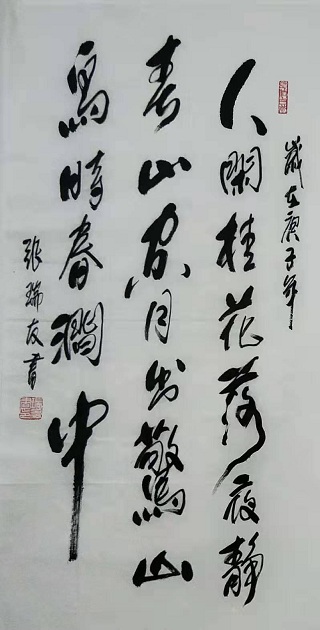 歲在庚子年
人閑桂花落夜靜
春山空月出驚山
鳥時春澗中
張瑞友書